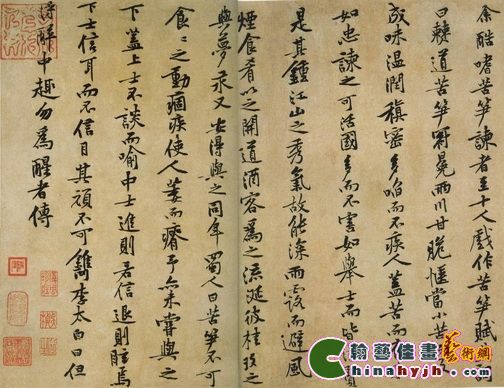 余酷嗜苦笋諫者至十人戲作苦笋賦
曰僰道苦笋冠冕兩川甘脆愜當小苦
成味溫潤縝密多啗而不疾人蓋苦而
如忠諫之可活國多而不害如舉士而皆
是其鍾江山之秀氣故能深雨露而避風
煙食肴以之開道酒客為之流涎彼桂玫之
與夢永又安得與之同年蜀人曰苦笋不可
食〻之動痼疾使人萎而瘠予亦未嘗與之
下蓋上士不談而喻中士進則若信退則眩焉
下士信耳而不信目其頑不可鐫李太白曰但
得醉中趣勿為醒者傳
翰藝佳畫藝術網
hinahyjh.com